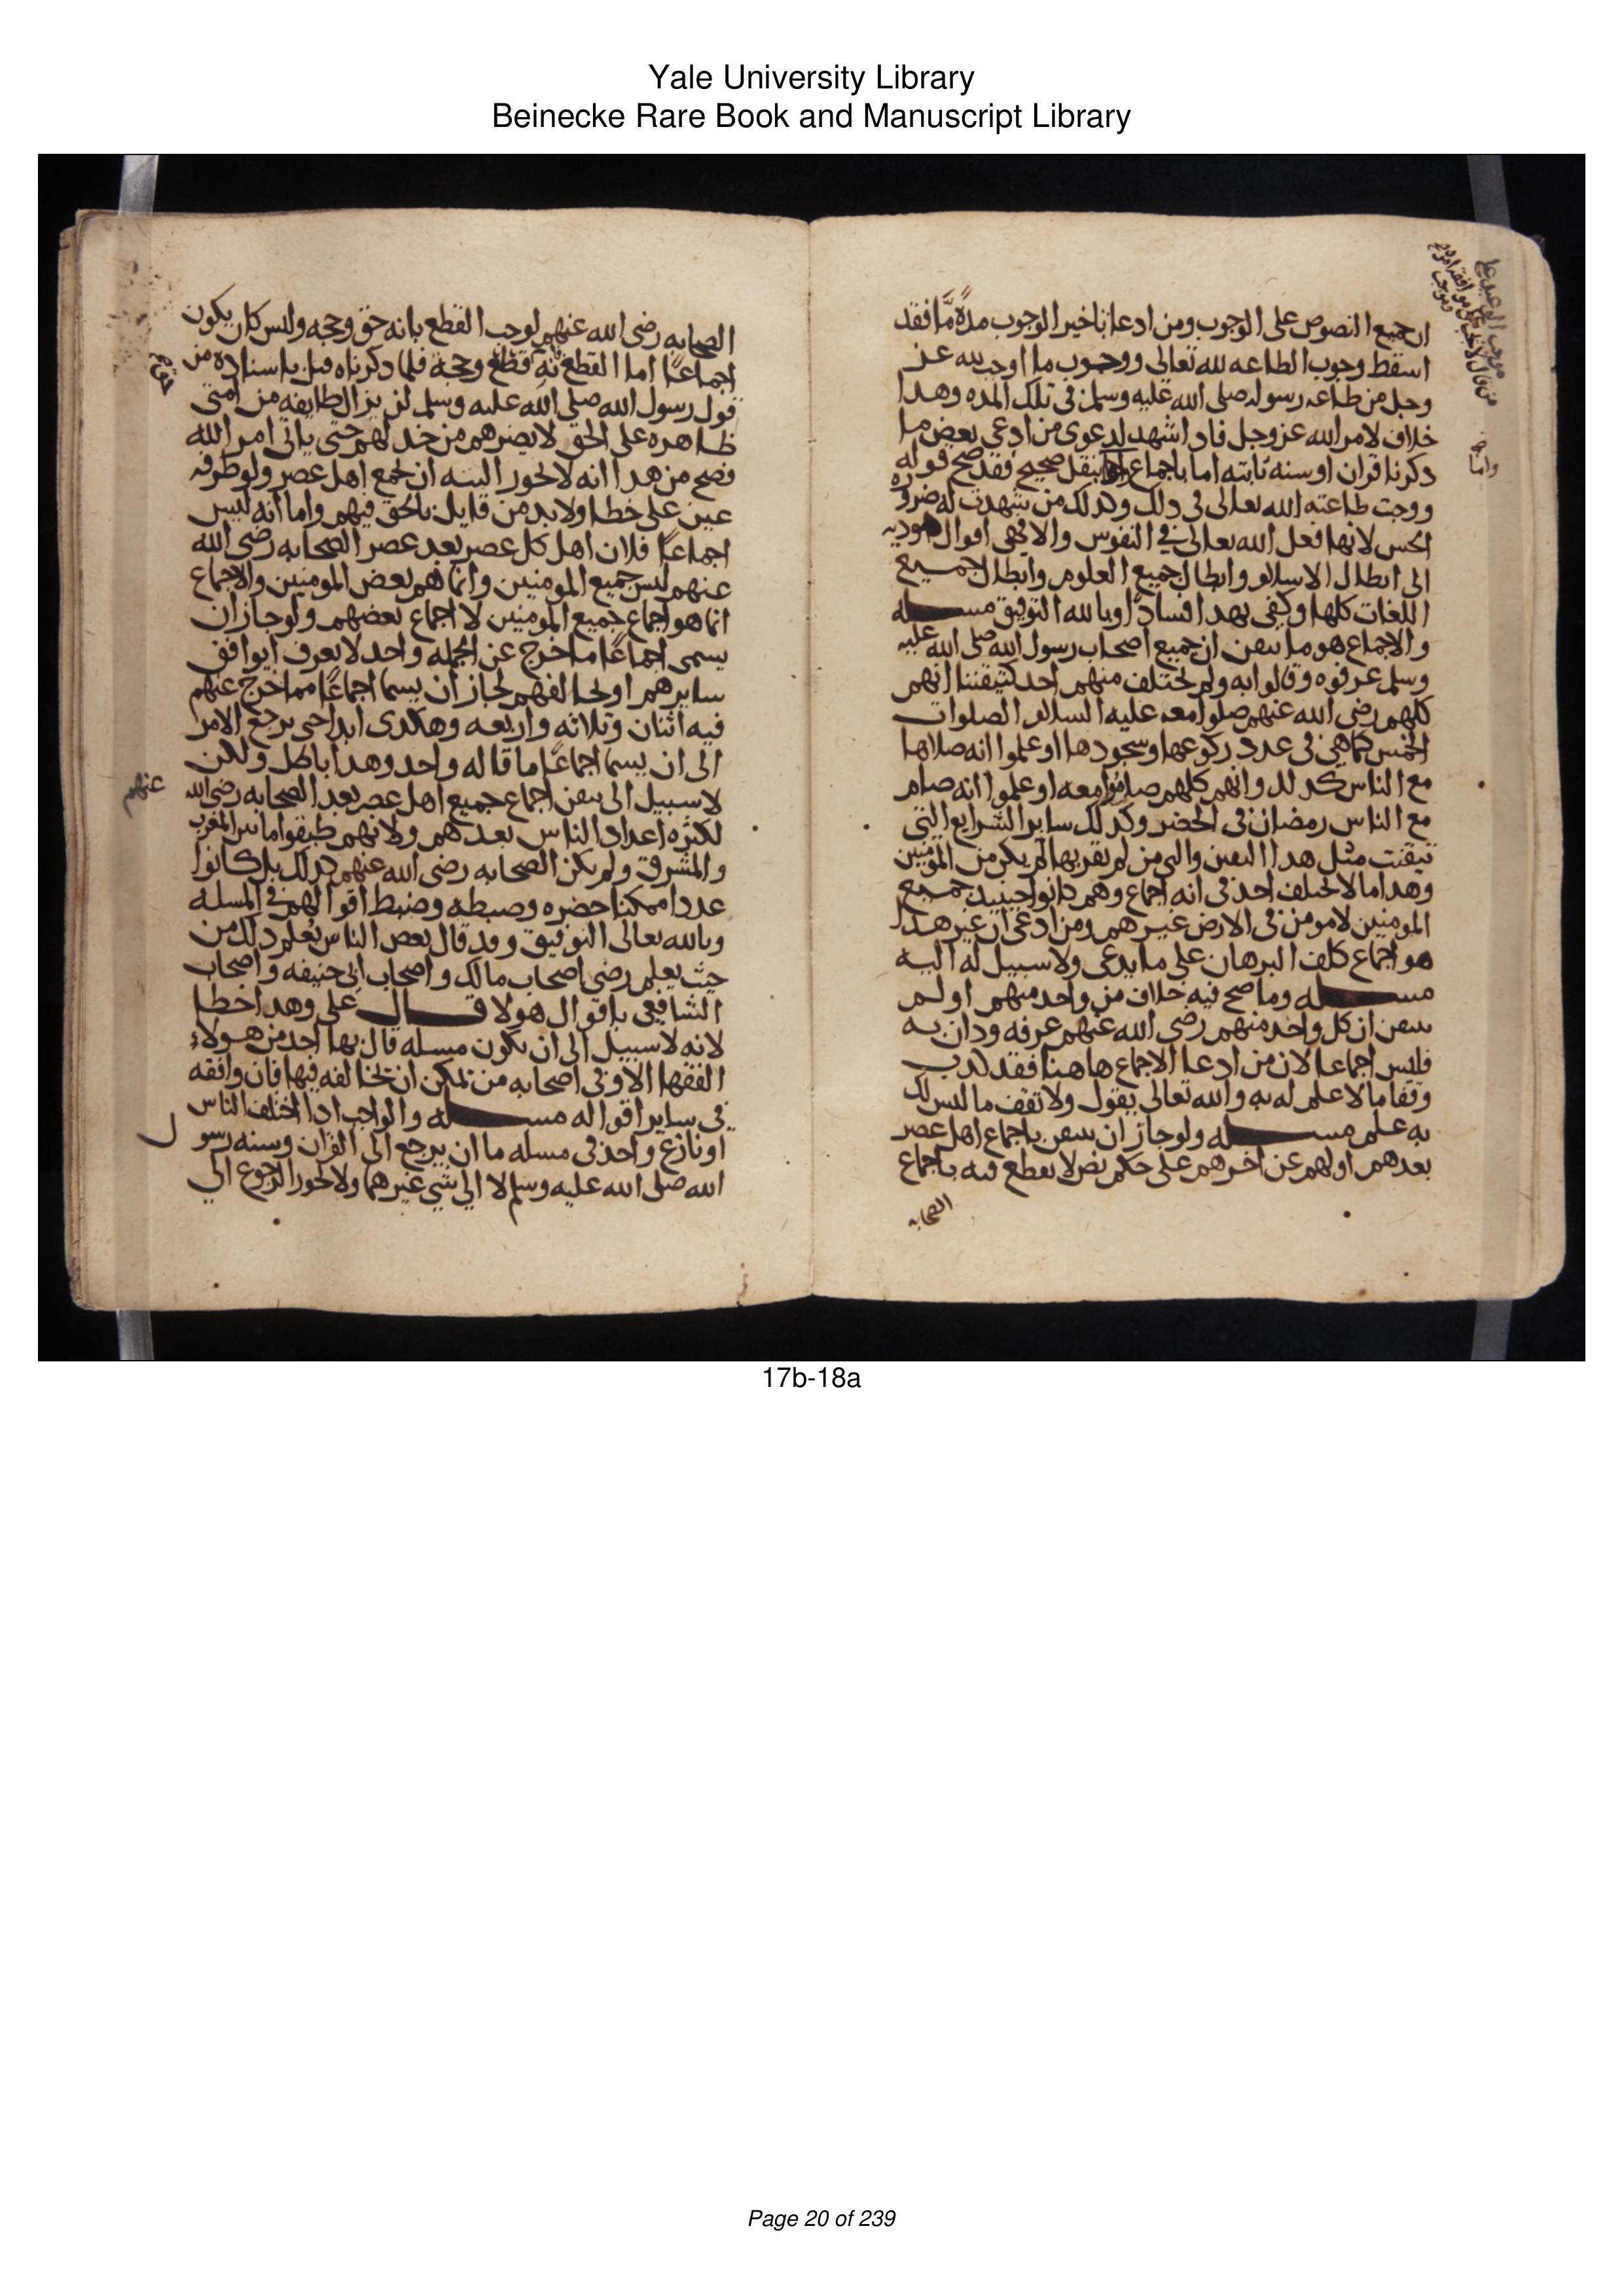 Yale University Library
Beinecke Rare Book and Manuscript Library
ان جميع النصوص على الوجوب ومن ادعا تاخير الوجوب مدةً مَّا فقد
اسقط وجوب الطاعه لله تعالى ووجوب ما اوجب الله عز
وجل من طاعه رسوله صلى الله عليه وسلم فى تلك المده وهدا
خلاف لامر الله عز وجل فاد اشهد لدعوى من ادعى بعض ما
دكرنا قران او سنه ثابته اما باجماع او بنقل صحيح فقد صح قوله
ووجبت طاعته الله تعالى فى دلك وكدلك من شهدت له ضروره
الحس لانها فعل الله تعالى في النفوس والا فهى اقوال موديه
الى ابطال الاسلام وابطال جميع العلوم وابطال جميع
اللغات كلها وكفى بهدا فسادًا وبالله التوفيق مسله
والاجماع هو ما تيقن ان جميع اصحاب رسول الله صلى الله عليه
وسلم عرفوه وقالوا به ولم يختلف منهم احد كتيقننا انهم
كلهم رضى الله عنهم صلوا معه عليه السلام الصلوات
الخمس كما هي فى عدد ركوعها وسجودها او علموا انه صلاها
مع الناس كدلك وانهم كلهم صاموا معه او علموا انه صام
مع الناس رمضان فى الحضر وكدلك ساير الشرايع التي
تيقنت مثل هدا اليقين والتي من لم يقر بها لم يكن من المومنين
وهدا ما لا يختلف احد فى انه اجماع وهم كانوا حينيد جميع
المومنين لا مومن فى الارض غيرهم ومن ادعى ان غير هدا
هو اجماع كلف البرهان على ما يدعى ولا سبيل له اليه
مسله وما صح فيه خلاف من واحد منهم او لم
يتيقن ان كل واحد منهم رضى الله عنهم عرفه ودان به
فليس اجماعا لان من ادعا الاجماع هاهنا فقد كدب
وقفا ما لا علم له به والله تعالى يقول ولا تقف ما ليس لك
به علم مسله ولو جاز ان يتيقن باجماع اهل عصر
بعدهم اولهم عن اخرهم على حكم نص لا يقطع فيه باجماع
الصحابه
واما
الصحابه رضى الله عنهم لوجب القطع بانه حق وحجه وليس كان يكون
اجماعًا اما القطع بانه قطع وحجة فلما دكرناه قبل باسناده من
قول رسول الله صلى الله عليه وسلم لن يزال طايفه من امتى
ظاهره على الحق لا يضرهم من خدلهم حتى ياتى امر الله
فصح من هدا انه لا يجوز البته ان يجمع اهل عصر ولو طرفه
عين على خطا ولا بد من قايل بالحق فيهم واما انه ليس
اجماعًا فلان اهل كل عصر بعد عصر الصحابه رضى الله
عنهم ليس جميع المومنين وانما هم بعض المومنين والاجماع
انما هو اجماع جميع المومنين لا اجماع بعضهم ولو جاز ان
يسمى اجماعًا ما خرج عن الجمله واحد لا يعرف ايوافق
سايرهم او يخالفهم لجاز ان يسما اجماعًا مما خرج عنهم
فيه اثنان وثلاثه واربعه وهكدى ابدا حتى يرجع الامر
الى ان يسما اجماعًا ما قاله واحد وهدا باطل ولكن
لا سبيل الى تيقن اجماع جميع اهل عصر بعد الصحابه رضى الله
عنهم
لكثره اعداد الناس بعدهم ولانهم طبقوا ما بين المغرب
والمشرق ولم يكن الصحابه رضى الله عنهم كدلك بل كانوا
عددا ممكنا حضره وضبطه وضبط اقوالهم في المسله
وبالله تعالى التوفيق وقد قال بعض الناس يعلم دلك من
حيث يعلم رضى اصحاب مالك واصحاب ابى حنيفه واصحاب
الشافعي باقوال هولا قال على وهدا خطا
لانه لا سبيل الى ان يكون مسله قال بها احد من هولاء
الفقها الا وفى اصحابه من يمكن ان يخالفه فيها فان وافقه
فى ساير اقواله مسله والواجب ادا اختلف الناس
او نازع واحد فى مسله ما ان يرجع الى القران وسنه رسول
الله صلى الله عليه وسلم لا الى شي غيرهما ولا يجوز الرجوع الى
17b-18a
Page 20 of 239